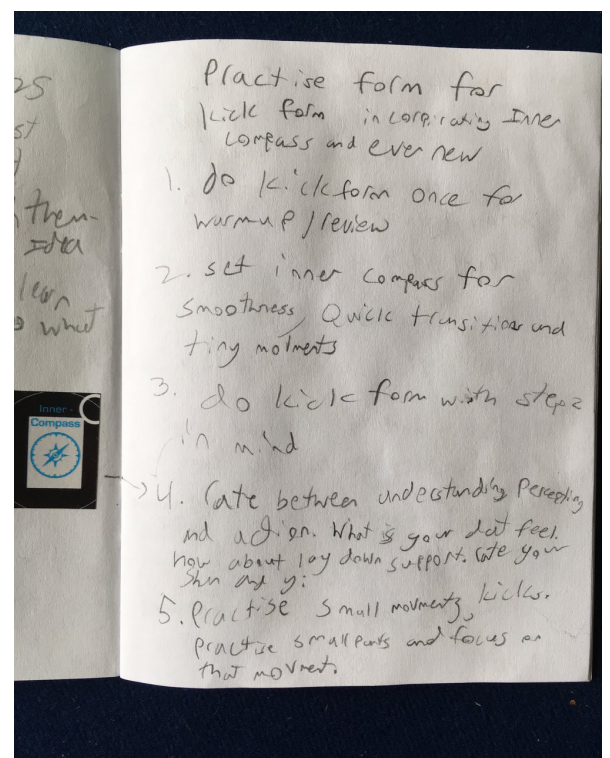 25
st
them-
Idea
learn
what
Inner -
Compass
Practise form for
kick form incorpirating Inner
Compass and ever new
1. do kick form once for
warmup / review
2. set inner compass for
smoothness, Quick transitions and
tiny motments
3. do kick form with step 2
in mind
4. rate between understanding Percepting
and action. What is your dat feel.
how about lay down support. rate your
Shin and yi
5. Practise small movments, kicks.
Practise small parts and focus on
that movment.